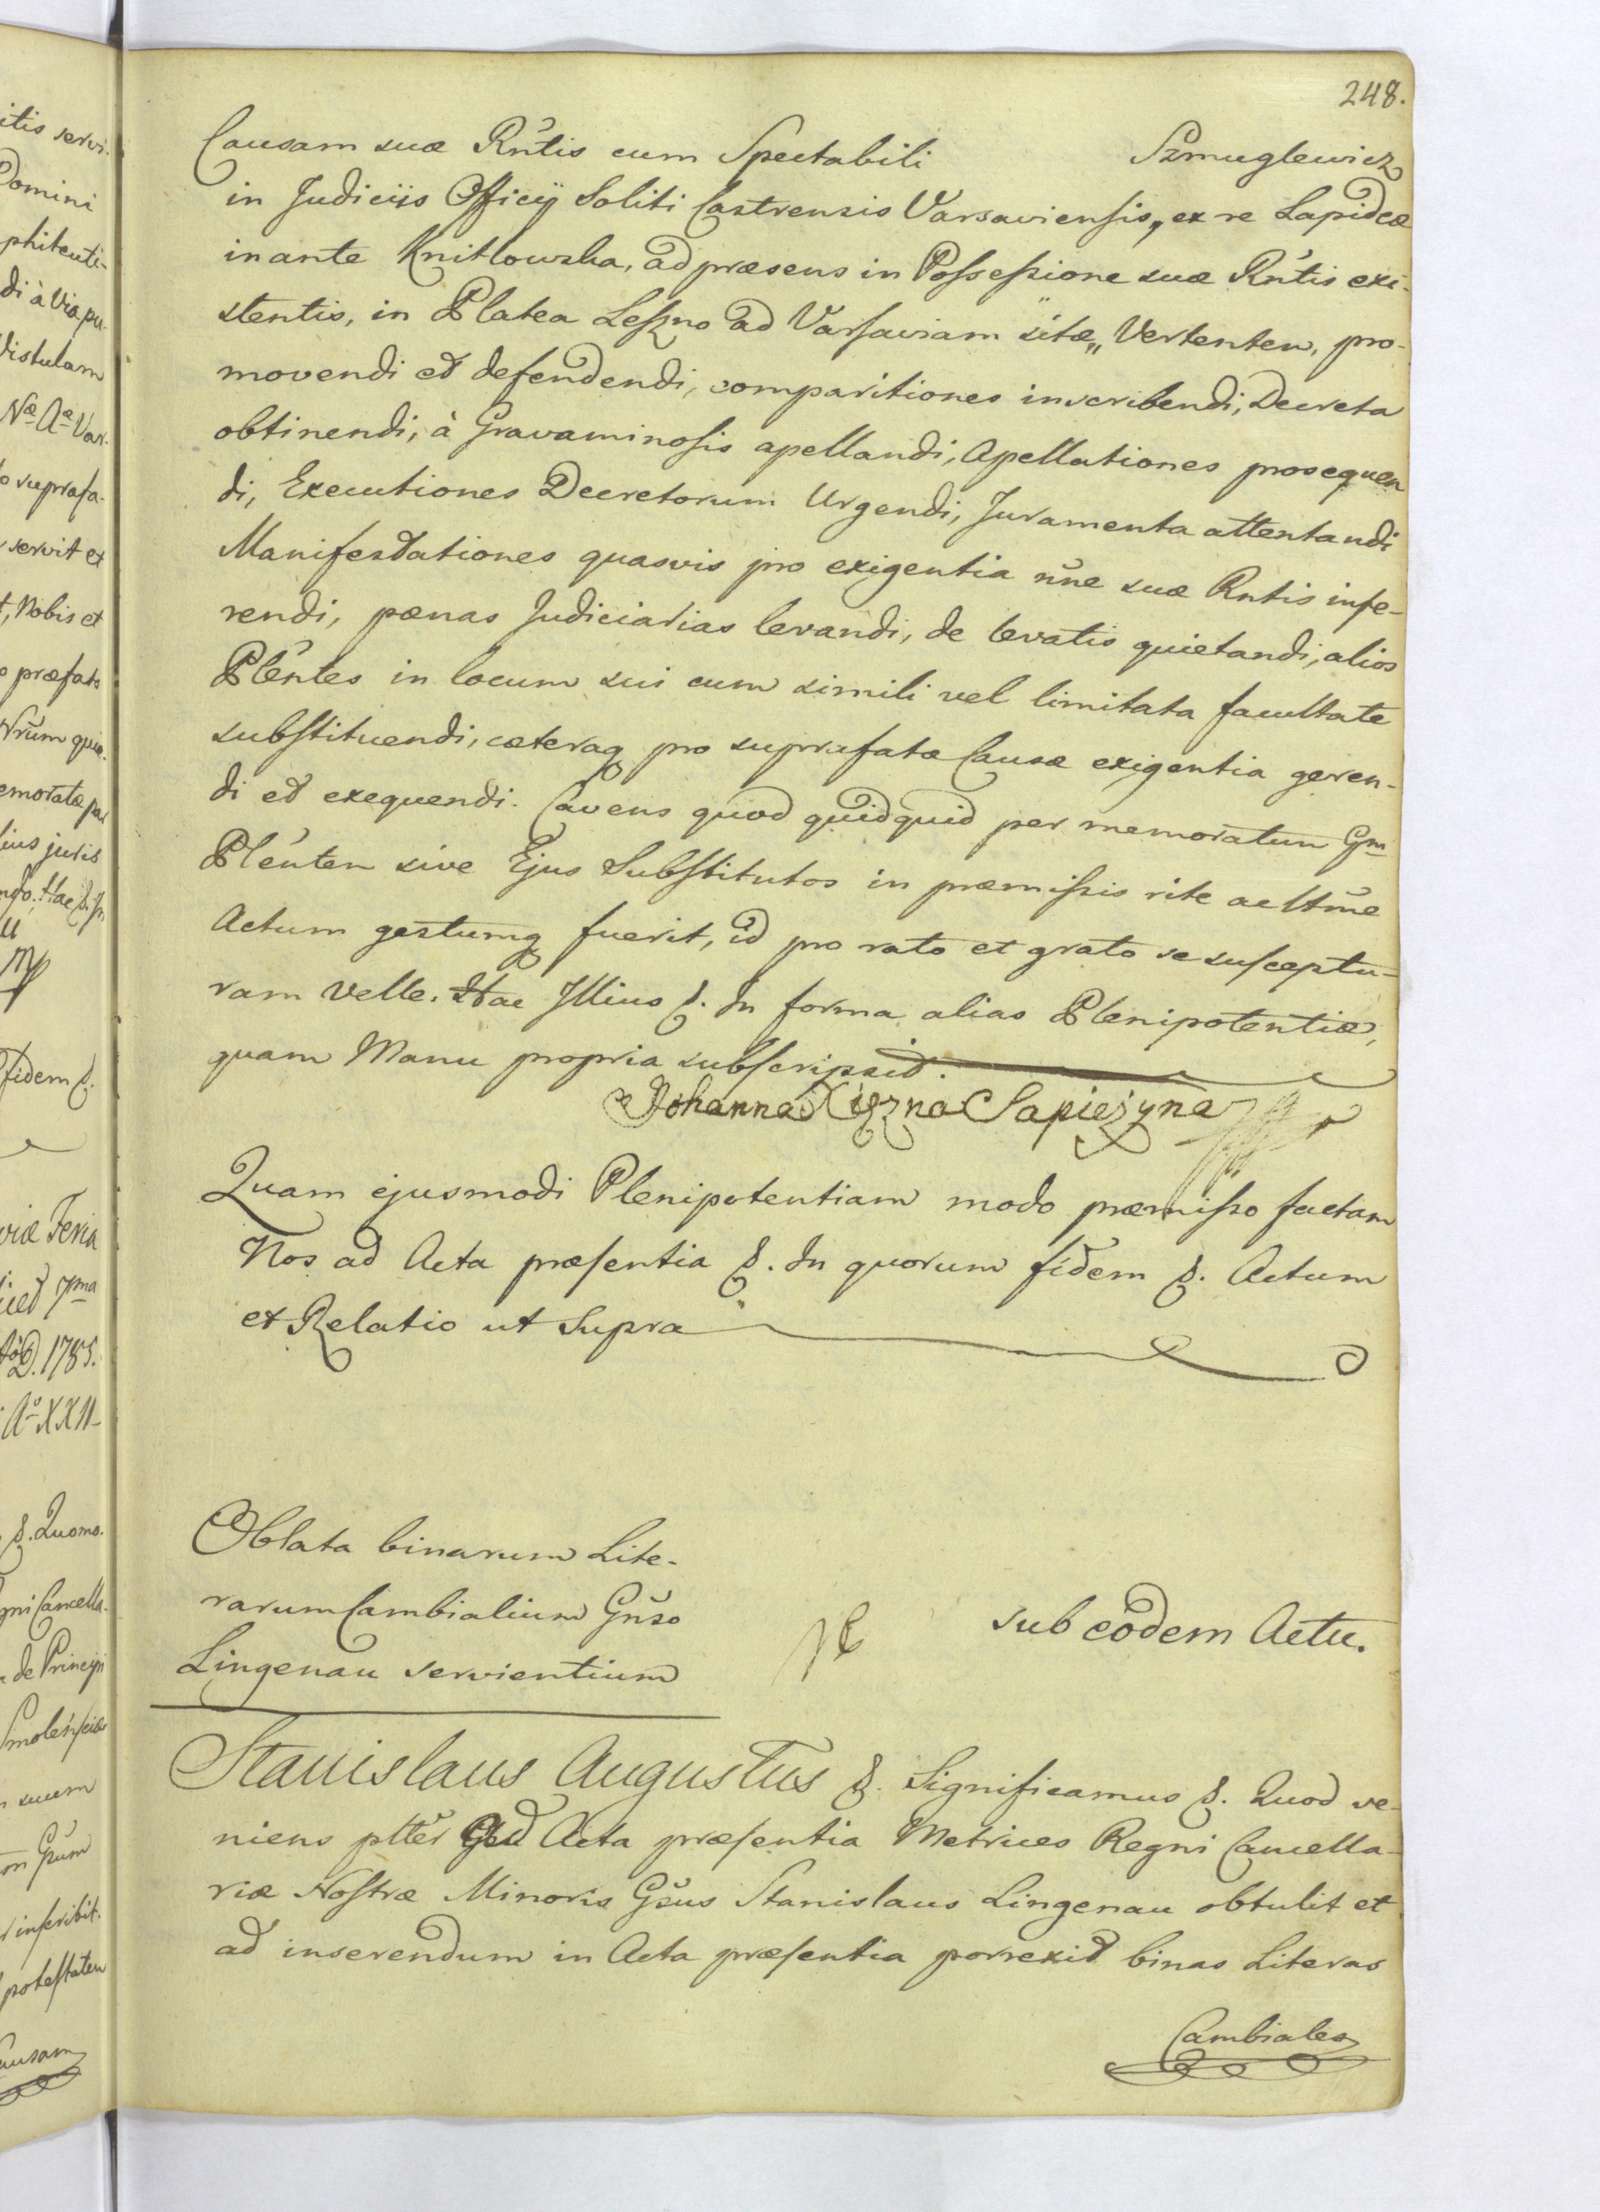 248.
Causam suæ Rn̄tis cum Spectabili Szmuglewicz
in Judiciis Officij Soliti Castrensis Varsaviensis, ex re Lapideæ
inante Knitlowska, ad præsens in Possessione suæ Rn̄tis exi-
stentis, in Platea Leszno ad Varsaviam sitæ„ Vertenten, pro-
movendi et defendendi, comparitiones inscribendi, Decreta
obtinendi, à Gravaminosis apellandi, Apellationes prosequen
di, Executiones Decretorum Urgendi, Juramenta attentandi
Manifestationes quasvis pro exigentia nn̄e suæ Rntis infe-
rendi, pœnas Judiciarias levandi, de levatis quietandi, alios
Plēntes in locum sui cum simili vel limitata facultate
substituendi, cæteraq pro suprafatæ Causæ exigentia geren-
di et exequendi. Cavens quod quidquid per memoratum Gm
Plēnten sive Ejus Substitutos in præmissis rite ac ltm̄e
Actum gestumq fuerit, id pro rato et grato se susceptu-
ram velle. Hac Illius &. In forma alias Plenipotentiæ,
quam Manu propria subscripsit.
Johanna Xięzna Sapieżyna
Quam ejusmodi Plenipotentiam modo præmisso factam
Nos ad Acta præsentia &. In quorum fidem &. Actum
et Relatio ut Supra
Oblata binarum Lite-
rarum Cambialium Gn̄so
Lingenau servientium
sub eodem Actu.
Stanislaus Augustus &. Significamus &. Quod ve-
niens pltēr ad Acta præsentia Metrices Regni Cancella-
riæ Nostræ Minoris Gs̄us Stanislaus Lingenau obtulit et
ad inserendum in Acta præsentia porrexit binas Literas
Cambiales